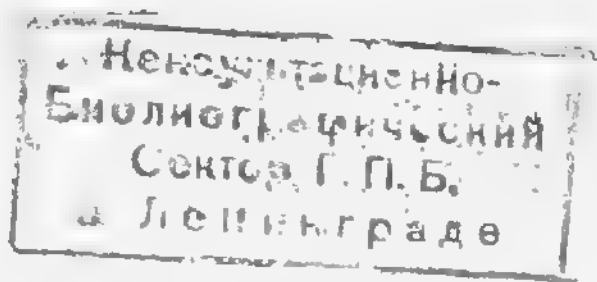 Консультационно-
Библиографический
Сектор Г. П. Б.
в Ленинграде